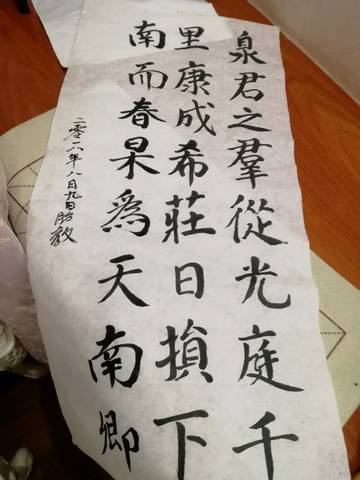 泉君之羣從光庭千
里康成希莊日損下
南而春杲爲天南卿
二零一八年八月九日